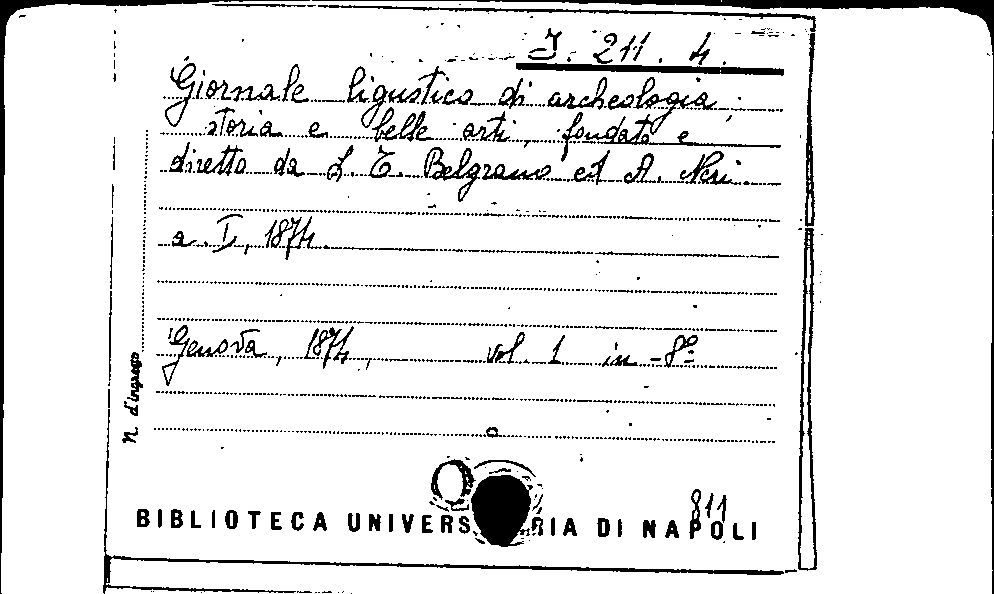 J. 211. 4.
Giornale ligustico di archeologia,
storia e belle arti, fondato e
diretto da L. T. Belgrano ed A. Neri.
a. I, 1874.
Genova, 1874, vol. 1 in-8º
N. d'ingresso
811
BIBLIOTECA UNIVERS RIA DI NAPOLI